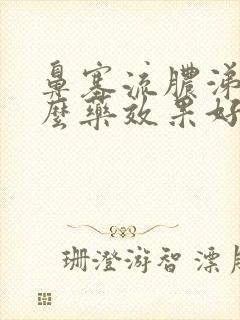 鼻塞流膿涕
麼藥效果好
珊澄游智漂